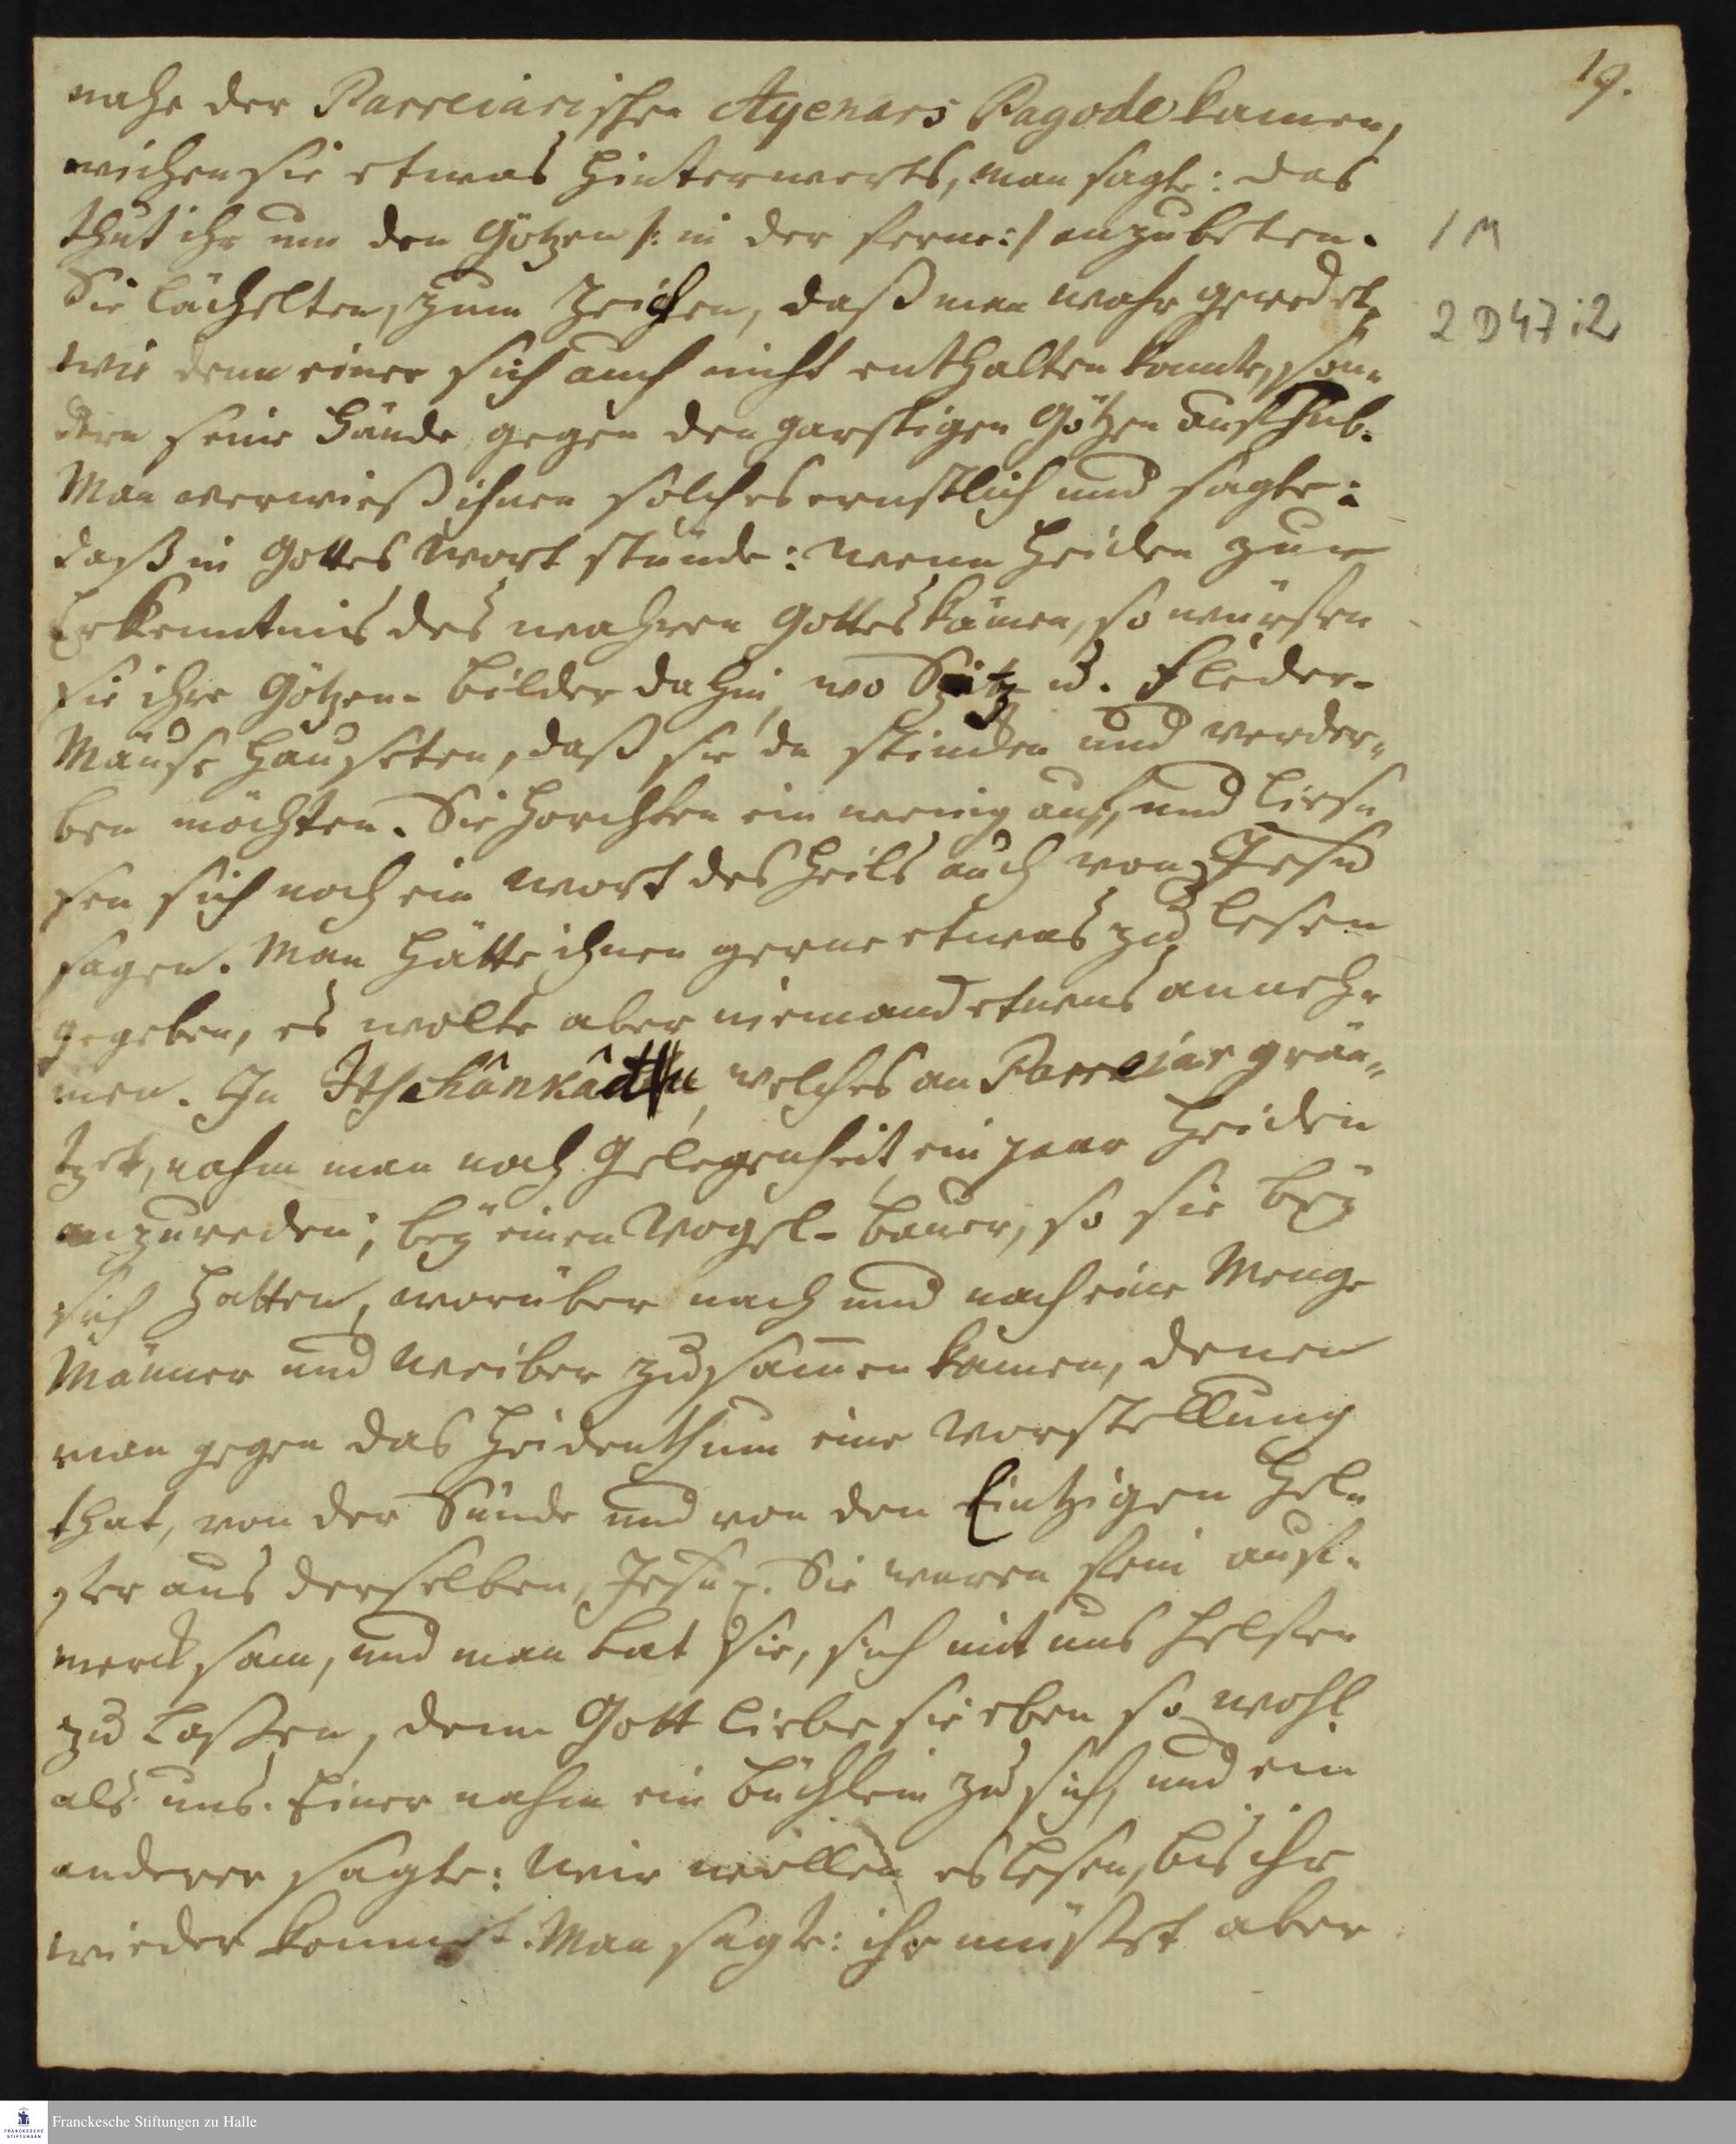 19.
nahe der Parreiarischen Ayenars Pagode kamen,
wichen sie etwas hinterwerts, man sagte: das
thut ihr um den Götzen /: in der ferne :/ anzubeten.
1 M
Sie lächelten, zum Zeichen, daß man wahr geredet,
2 D 47 i 2
wie denn einer sich auch nicht enthalten konte, son-
dern seine Hände gegen den garstigen Götzen aufhub.
Man verwieß ihnen solches ernstlich und sagte:
daß in Gottes Wort stünde: wenn Heiden zur
Erkenntnis des wahren Gottes kämen, so würfen
sie ihre Götzen-bilder dahin, wo Spitz- u. Fleder-
Mäuse hauseten, daß sie da stincken und verder-
ben möchten. Sie horchten ein wenig auf, und ließ-
sen sich noch ein Wort des Heils auch von Jesu
sagen. Man hätte ihnen gerne etwas zu lesen
gegeben, es wolte aber niemand etwas anneh-
men. In Itschânkâdu, welches an Parreiar grän-
tzet, nahm man noch Gelegenheit, ein paar Heiden
anzureden; bey einen Vogel-bauer, so sie bey
sich hatten, worüber nach und nach eine Menge
Männer und Weiber zusam̄en kamen, denen
man gegen das Heidenthum eine Vorstellung
that, von der Sünde und von den Eintzigen Hel-
fer aus derselben, Jesu. Sie waren fein auf-
mercksam, und man bat sie, sich mit uns helfen
zu laßen, denn Gott liebe sie eben so wohl
als uns. Einer nahm ein büchlein zu sich, und ein
anderer sagte: Wir wollen es lesen, bis ihr
wieder kommt. Man sagte: ihr müsset aber
Franckesche Stiftungen zu Halle
FRANCKESCHE
STIFTUNGEN